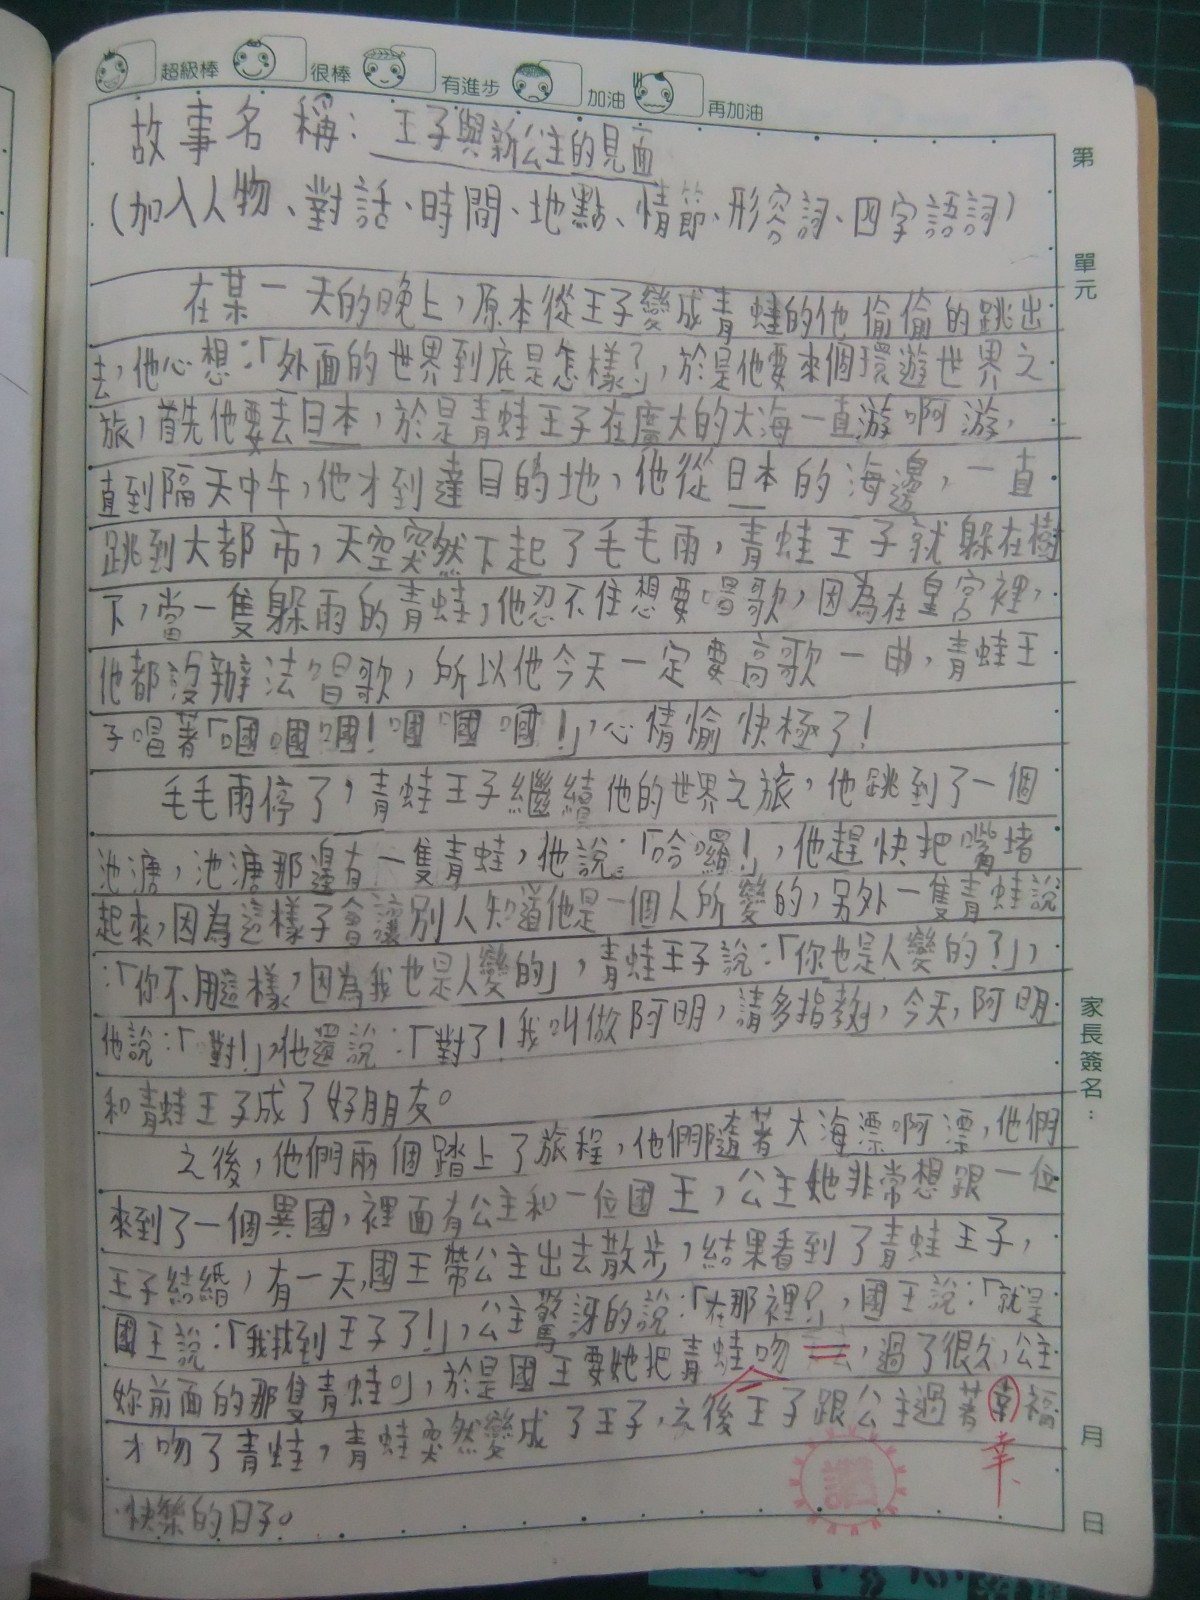 超級棒 很棒 有進步 加油 再加油
故事名稱：王子與新公主的見面
（加入人物、對話、時間、地點、情節、形容詞、四字語詞）
在某一天的晚上，原本從王子變成青蛙的他偷偷的跳出
去，他心想：「外面的世界到底是怎樣？」，於是他要來個環遊世界之
旅，首先他要去日本，於是青蛙王子在廣大的大海一直游啊游，
直到隔天中午，他才到達目的地，他從日本的海邊，一直
跳到大都市，天空突然下起了毛毛雨，青蛙王子就躲在樹
下，當一隻躲雨的青蛙，他忍不住想要唱歌，因為在皇宮裡，
他都沒辦法唱歌，所以他今天一定要高歌一曲，青蛙王
子唱著「嘓嘓嘓！嘓嘓嘓！」，心情愉快極了！
毛毛雨停了，青蛙王子繼續他的世界之旅，他跳到了一個
池溏，池溏那邊有一隻青蛙，他說：「哈囉！」，他趕快把嘴堵
起來，因為這樣子會讓別人知道他是一個人所變的，另外一隻青蛙說
：「你不用這樣，因為我也是人變的」，青蛙王子說：「你也是人變的？」，
他說：「對！」，他還說：「對了！我叫做阿明，請多指教」，今天，阿明
和青蛙王子成了好朋友。
之後，他們兩個踏上了旅程，他們隨著大海漂啊漂，他們
來到了一個異國，裡面有公主和一位國王，公主她非常想跟一位
王子結婚，有一天，國王帶公主出去散步，結果看到了青蛙王子，
國王說：「我找到王子了！」，公主驚訝的說：「在那裡？」，國王說：「就是
妳前面的那隻青蛙」，於是國王要她把青蛙吻，過了很久，公主
才吻了青蛙，青蛙突然變成了王子，之後王子跟公主過著幸福
幸
快樂的日子。
讚
第
單元
家長簽名：
月
日